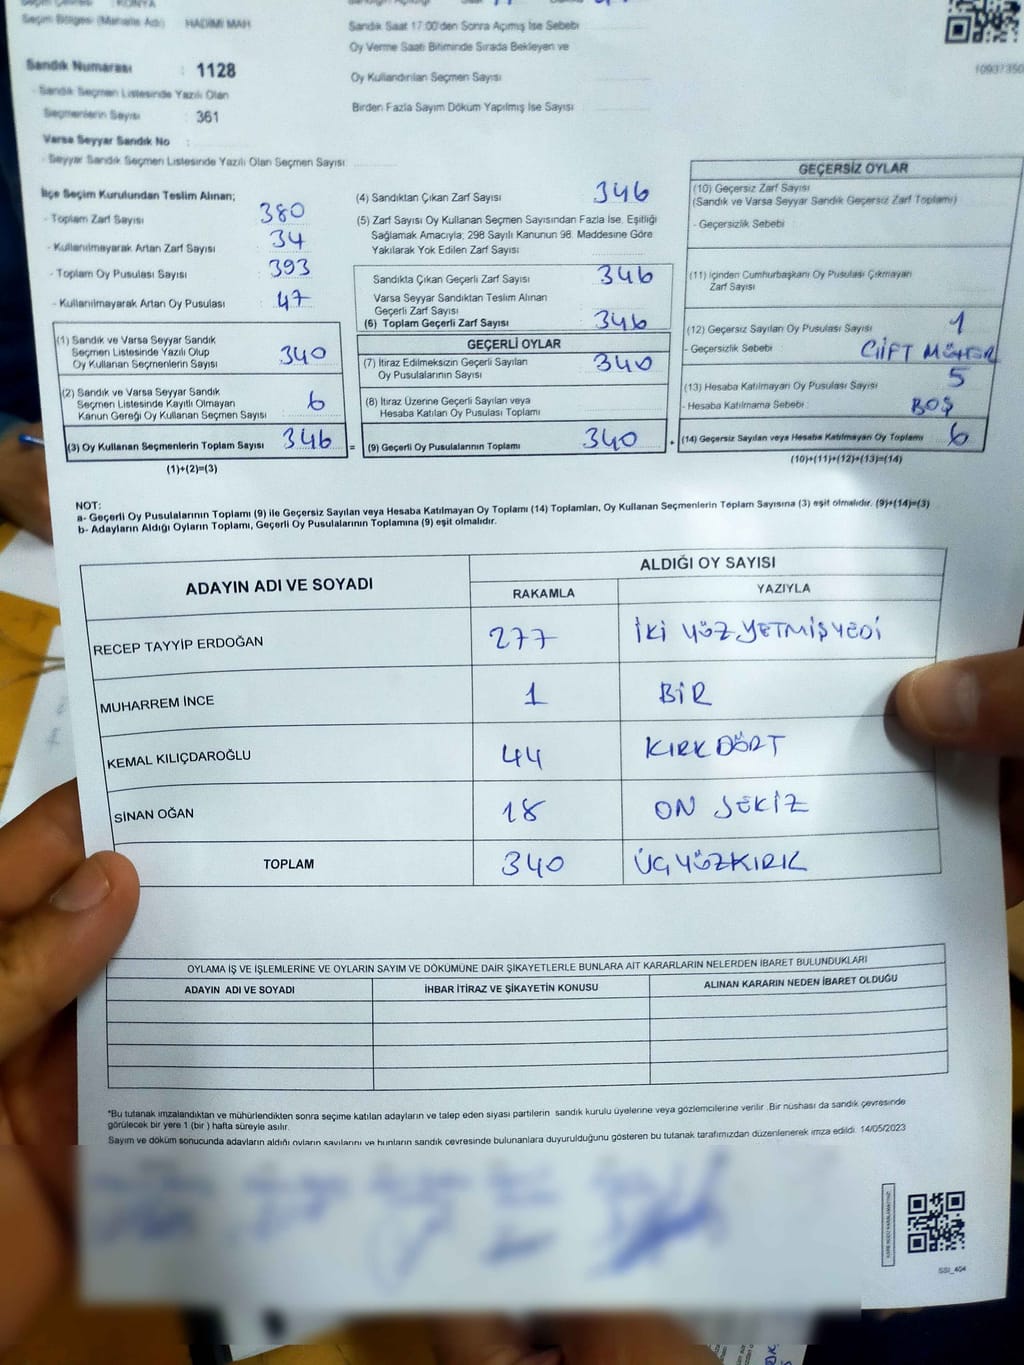 KONYA
Seçim Bölgesi (Mahalle Adı) : HADİMİ MAH
Sandık Numarası : 1128
- Sandık Seçmen Listesinde Yazılı Olan
Seçmenlerin Sayısı : 361
Varsa Seyyar Sandık No :
- Seyyar Sandık Seçmen Listesinde Yazılı Olan Seçmen Sayısı
Sandık Saat 17:00'den Sonra Açımış İse Sebebi
Oy Verme Saati Bitiminde Sırada Bekleyen ve
Oy Kullandırılan Seçmen Sayısı
Birden Fazla Sayım Döküm Yapılmış İse Sayısı
İlçe Seçim Kurulundan Teslim Alınan;
- Toplam Zarf Sayısı : 380
- Kullanılmayarak Artan Zarf Sayısı : 34
- Toplam Oy Pusulası Sayısı : 393
- Kullanılmayarak Artan Oy Pusulası : 47
(1) Sandık ve Varsa Seyyar Sandık
Seçmen Listesinde Yazılı Olup
Oy Kullanan Seçmenlerin Sayısı 340
(2) Sandık ve Varsa Seyyar Sandık
Seçmen Listesinde Kayıtlı Olmayan
Kanun Gereği Oy Kullanan Seçmen Sayısı 6
(3) Oy Kullanan Seçmenlerin Toplam Sayısı 346 =
(1)+(2)=(3)
(4) Sandıktan Çıkan Zarf Sayısı 346
(5) Zarf Sayısı Oy Kullanan Seçmen Sayısından Fazla İse, Eşitliği
Sağlamak Amacıyla; 298 Sayılı Kanunun 98. Maddesine Göre
Yakılarak Yok Edilen Zarf Sayısı
Sandıkta Çıkan Geçerli Zarf Sayısı 346
Varsa Seyyar Sandıktan Teslim Alınan
Geçerli Zarf Sayısı
(6) Toplam Geçerli Zarf Sayısı 346
GEÇERLİ OYLAR
(7) İtiraz Edilmeksizin Geçerli Sayılan
Oy Pusulalarının Sayısı 340
(8) İtiraz Üzerine Geçerli Sayılan veya
Hesaba Katılan Oy Pusulası Toplamı
(9) Geçerli Oy Pusulalarının Toplamı 340 +
GEÇERSİZ OYLAR
(10) Geçersiz Zarf Sayısı
(Sandık ve Varsa Seyyar Sandık Geçersiz Zarf Toplamı)
- Geçersizlik Sebebi :
(11) İçinden Cumhurbaşkanı Oy Pusulası Çıkmayan
Zarf Sayısı
(12) Geçersiz Sayılan Oy Pusulası Sayısı 1
- Geçersizlik Sebebi : ÇİFT MÜHÜR
(13) Hesaba Katılmayan Oy Pusulası Sayısı 5
- Hesaba Katılmama Sebebi : BOŞ
(14) Geçersiz Sayılan veya Hesaba Katılmayan Oy Toplamı 6
(10)+(11)+(12)+(13)=(14)
NOT:
a- Geçerli Oy Pusulalarının Toplamı (9) ile Geçersiz Sayılan veya Hesaba Katılmayan Oy Toplamı (14) Toplamları, Oy Kullanan Seçmenlerin Toplam Sayısına (3) eşit olmalıdır. (9)+(14)=(3)
b- Adayların Aldığı Oyların Toplamı, Geçerli Oy Pusulalarının Toplamına (9) eşit olmalıdır.
ADAYIN ADI VE SOYADI
ALDIĞI OY SAYISI
RAKAMLA YAZIYLA
RECEP TAYYİP ERDOĞAN 277 İKİ YÜZ YETMİŞ YEDİ
MUHARREM İNCE 1 BİR
KEMAL KILIÇDAROĞLU 44 KIRK DÖRT
SİNAN OĞAN 18 ON SEKİZ
TOPLAM 340 ÜÇ YÜZ KIRK
OYLAMA İŞ VE İŞLEMLERİNE VE OYLARIN SAYIM VE DÖKÜMÜNE DAİR ŞİKAYETLERLE BUNLARA AİT KARARLARIN NELERDEN İBARET BULUNDUKLARI
ADAYIN ADI VE SOYADI İHBAR İTİRAZ VE ŞİKAYETİN KONUSU ALINAN KARARIN NEDEN İBARET OLDUĞU
*Bu tutanak imzalandıktan ve mühürlendikten sonra seçime katılan adayların ve talep eden siyasi partilerin sandık kurulu üyelerine veya gözlemcilerine verilir. Bir nüshası da sandık çevresinde
görülecek bir yere 1 (bir) hafta süreyle asılır.
Sayım ve döküm sonucunda adayların aldığı oyların sayılarını ve bunların sandık çevresinde bulunanlara duyurulduğunu gösteren bu tutanak tarafımızdan düzenlenerek imza edildi. 14/05/2023
SSI_404